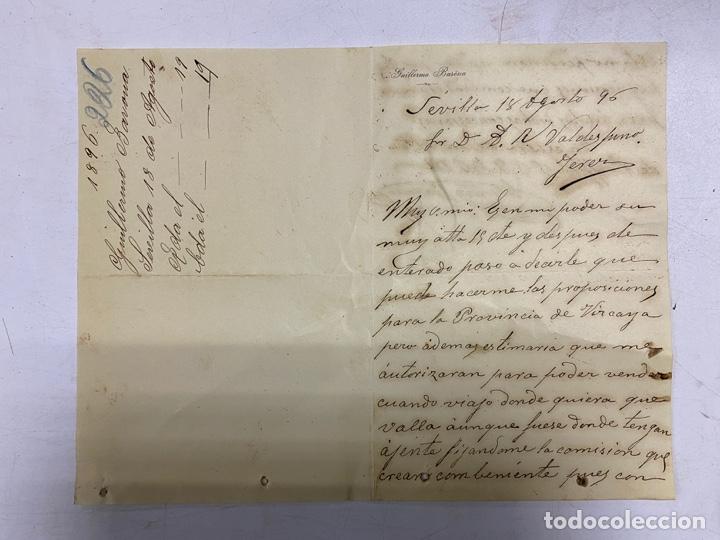 1896
226
Guillermo Barona
Sevilla 18 de Agosto
Rda el — 19
Cda el — 19
Guillermo Baróna
Sévilla 18 Agosto 96
Sr D. A. R. Valdespino.
Jerez
Muy s. mio: Es en mi poder su
muy atta 15 cte y despues de
enterado paso á decirle que
puede hacerme las proposiciónes
para la Provincia de Vizcaya
pero además estimaria que me
autorizaran para poder vender
cuando viajo donde quiera que
valla áunque fuese donde tengan
ajente fijandome la comision que
crean combeniénte pues con
todocoleccion
todocoleccion.net